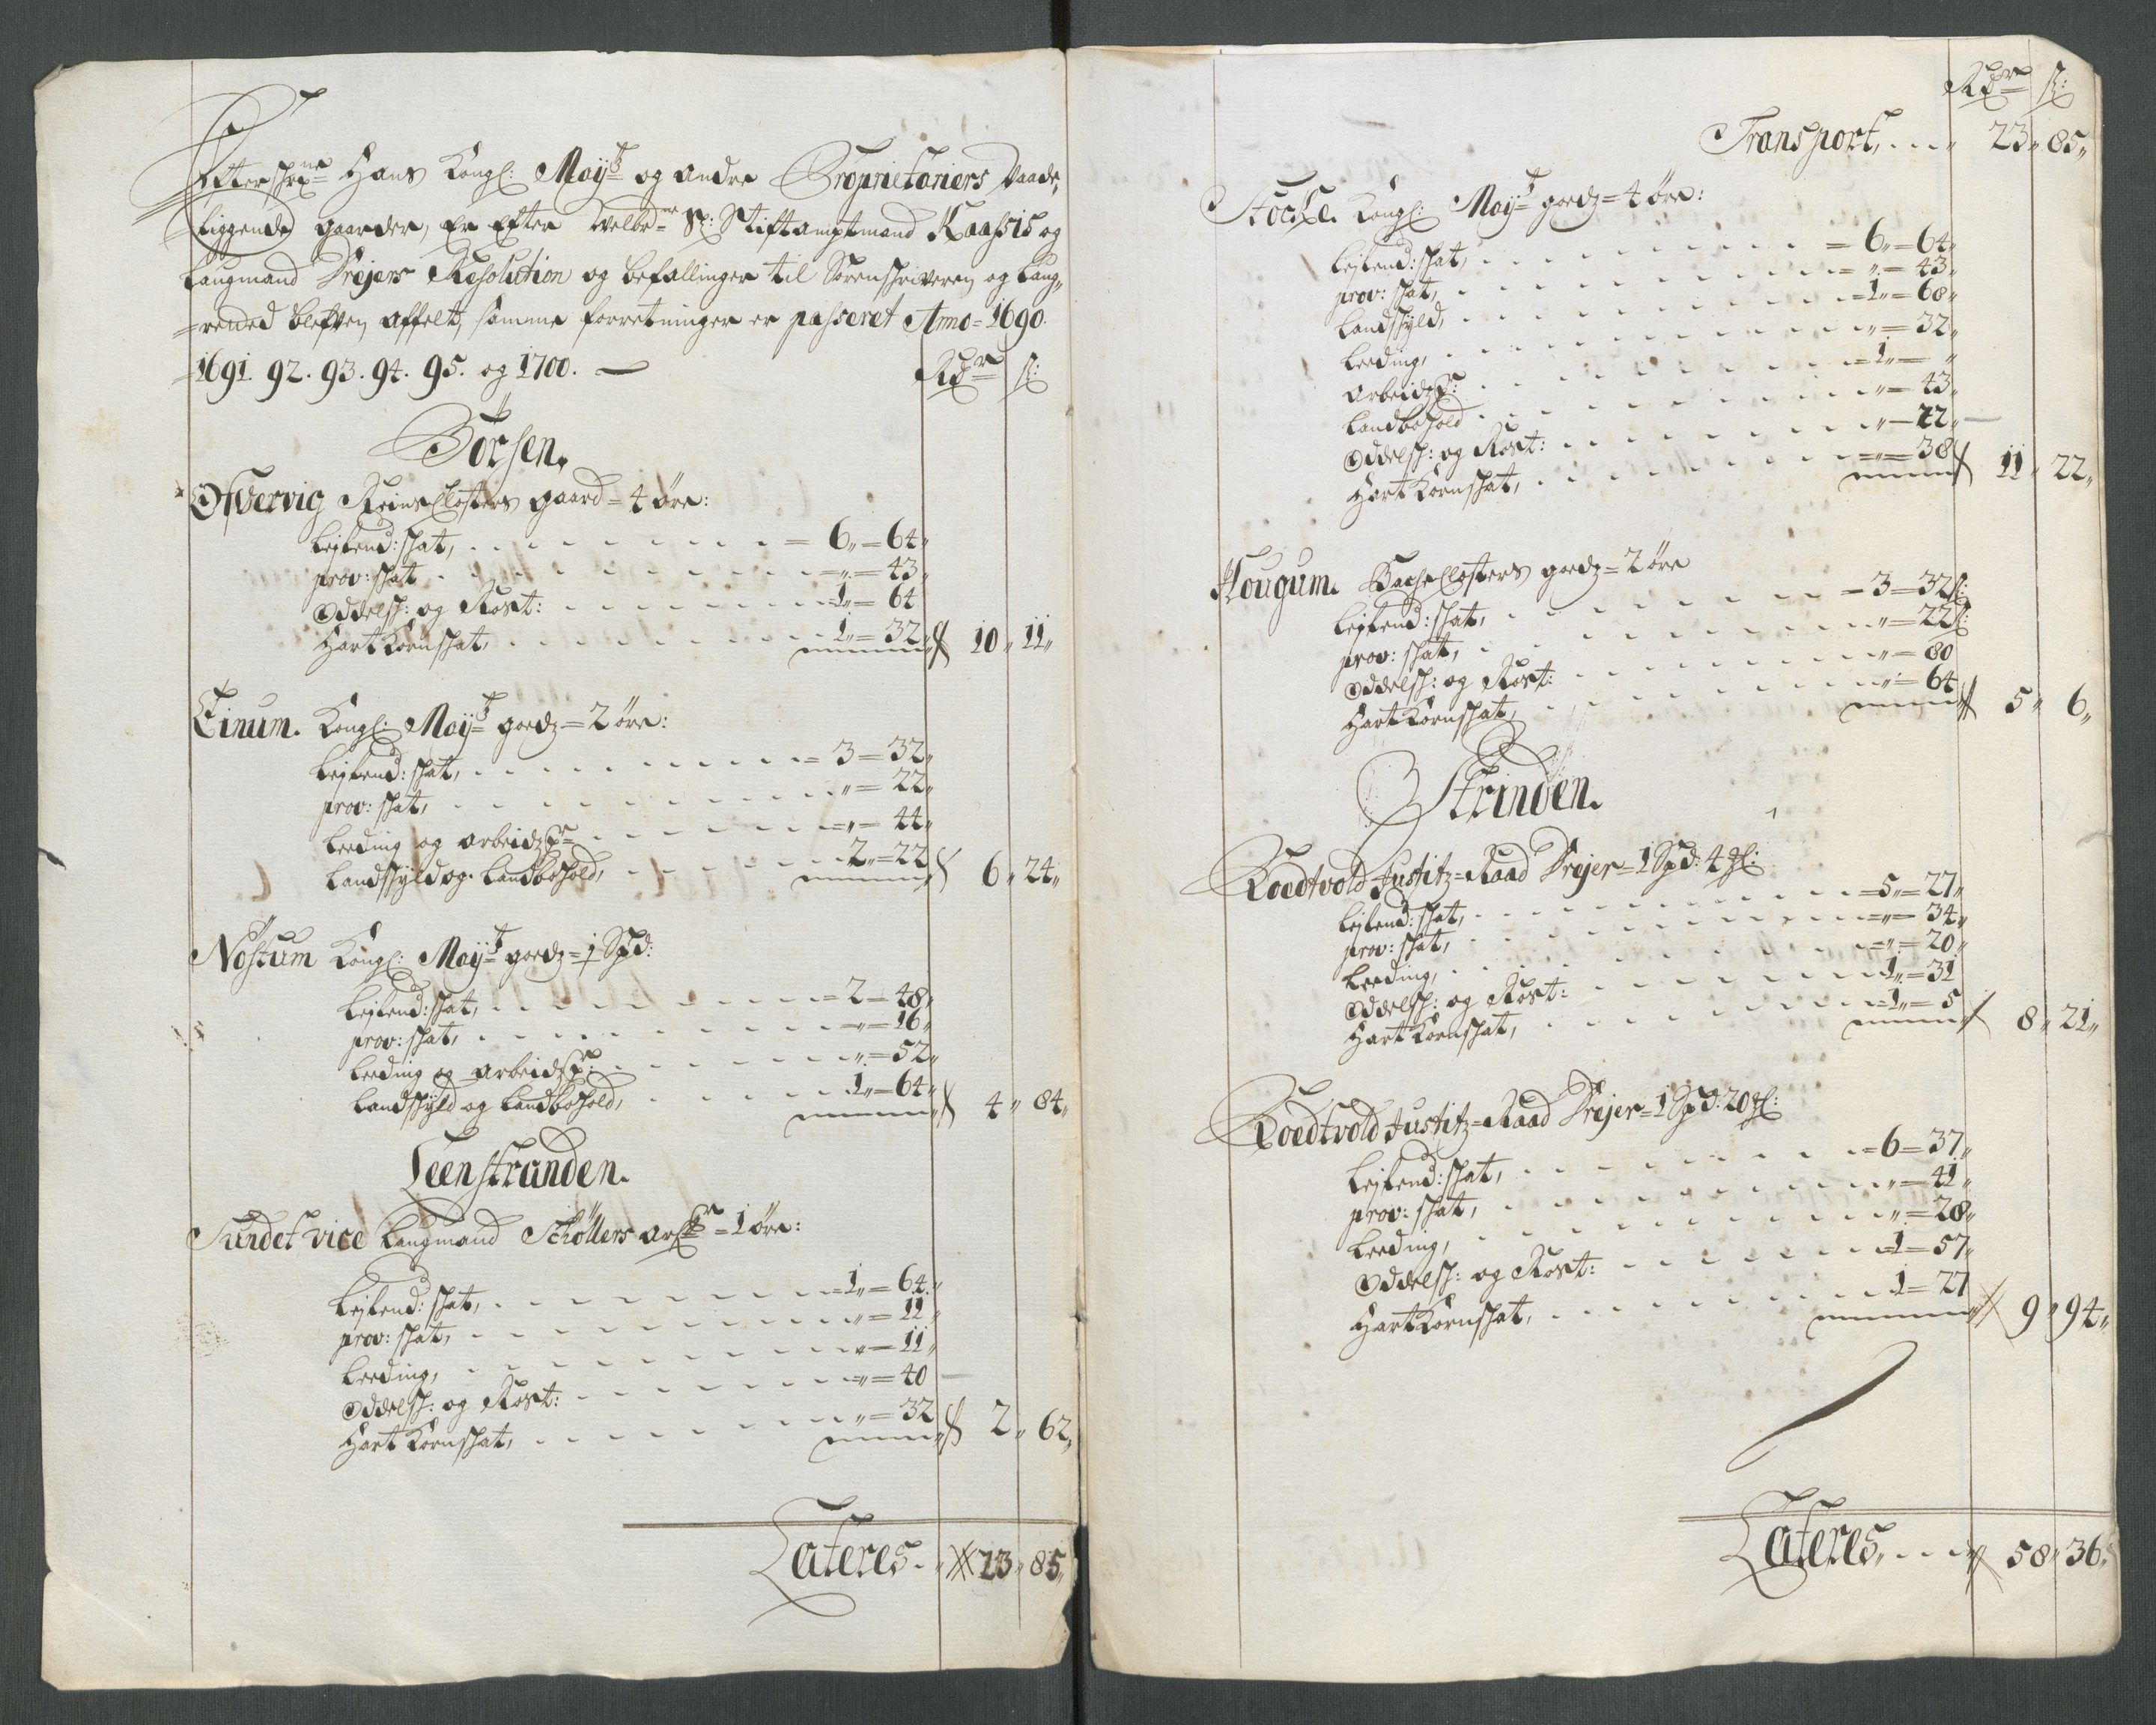 Efterschrefne Hans Kongl: Mayts og andre Proprietariers Øaade,
liggende gaarder, Er Efter Welbr: Sl: Stiftamptmand Kaassis og
Laugmand Drejers Resolution og befallinger til Sorenskriveren og Laug,,
=retted blefven affelt, samme forretninger er passeret Anno= 1690.
1691. 92. 93. 94. 95. og 1700. —
Rdr s:
Börsen.
Ofvervig Reins Closters gaard = 4 øre:
Lejlend: skat, = 6,, = 64,,
prov: skat = ,, = 43,,
Oddelsk: og Rost: 1,, = 64
Hart Kornskat, 1,, = 32,, 10,, 11,,
Einum. Kongl: Mayts godz = 2 øre:
Lejlend: skat, = 3 = 32,,
prov: skat, ,, = 22,,
Leeding og arbeidzp: = ,, = 44,,
Landskyld og Landbohold, 2,, = 22 6,, 24,,
Nöstum Kongl: Mayts godz = 1 Spd:
Lejlend: skat, = 2 = 48,,
prov: skat, = 16,,
Leeding og arbeidzp: ,, = 52,,
Landskyld og Landbohold, 1,, = 64,, 4,, 84,,
Leenstranden.
Sundet vice Laugmand Schöllers arf: = 1 øre:
Lejlend: skat, = 1,, = 64,,
prov: skat, ,, = 11,,
Leeding, ,, = 11,,
Oddelsk: og Rost: = ,, = 40
Hart Kornskat, ,, = 32 2,, 62,,
Lateres 23,, 85,,
Rdr s:
Transport, 23,, 85,,
Stocke. Kongl: Mayts godz = 4 øre:
Lejlend: skat, = 6,, = 64,,
prov: skat, = ,, = 43,,
Landskyld, = 1,, = 68,,
Leeding, ,, = 32,,
arbeidzp: = 1,, = ,,
Landbohold ,, = 43,,
Oddelsk: og Rost: ,, = 22,,
Hart Kornskat, = ,, = 38 11,, 22,,
Hougum. Backe Closters godz = 2 øre
Lejlend: skat, = 3 = 32s:
prov: skat, ,, = 22s:
Oddelsk: og Rost: ,, = 80
Hart Kornskat, ,, = 64 5,, 6,,
Strinden.
Loedtvold Justitz=Raad Drejer = 1 Spd: 4 ml:
Lejlend: skat, = 5,, = 27,,
prov: skat, = ,, = 34,,
Leeding, = ,, = 20,,
Oddelsk: og Rost: 1,, = 31
Hart Kornskat, = 1,, = 5 8,, 21,,
Loedtvold Justitz=Raad Drejer = 1 Spd: 20 ml:
Lejlend: skat, = 6 = 37,,
prov: skat, ,, = 41,,
Leeding, ,, = 28,,
Oddelsk: og Rost: = 1 = 57,,
Hart Kornskat, 1 = 27 9,, 94,,
Lateres, 58,, 36,,